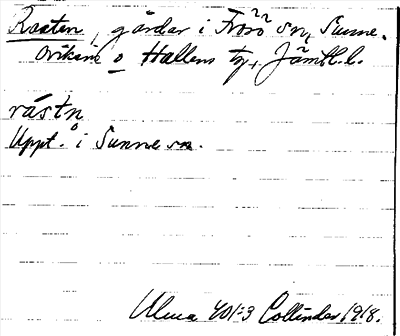 Rasten, gårdar i Frösö sn, Sunne,
Oviken o Hallens tg, Jämtl. l.
råstn
Uppt. i Sunne sn.
Ulma 401:3 Collinder 1918.